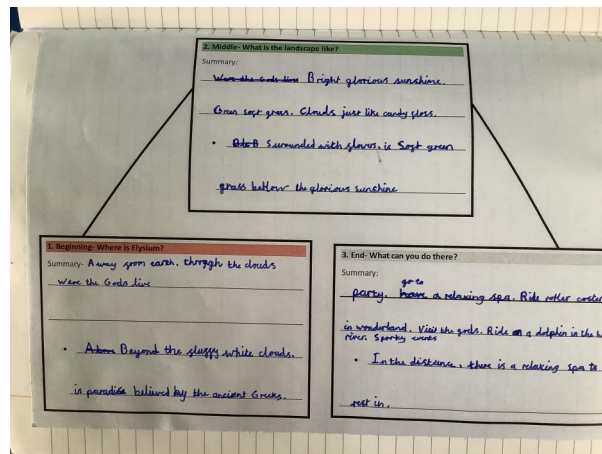 2. Middle- What is the landscape like?
Summary:
Were the Gods live Bright glorious sunshine.
Green sogt grass. Clouds just like candy gloss.
• Surounded with glowrs, is Sogt green
grass bellow the glorious sunshine
1. Beginning- Where is Elysium?
Summary- Away grom earth. through the clouds
Were the Gods live
• Beyond the gluggy white clouds.
is paradise believed by the ancient Greeks.
3. End- What can you do there?
Summary:
go to
party. have a relaxing spa. Ride roller coster
in wonderland. Visit the gods. Ride a dolphin in the
river. Sporty events
• In the distance, there is a relaxing spa to
rest in.